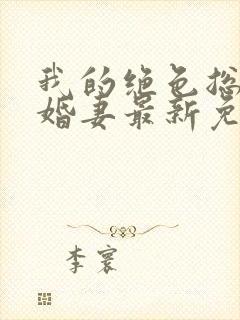 我的绝色总
婚妻最新免
李寰